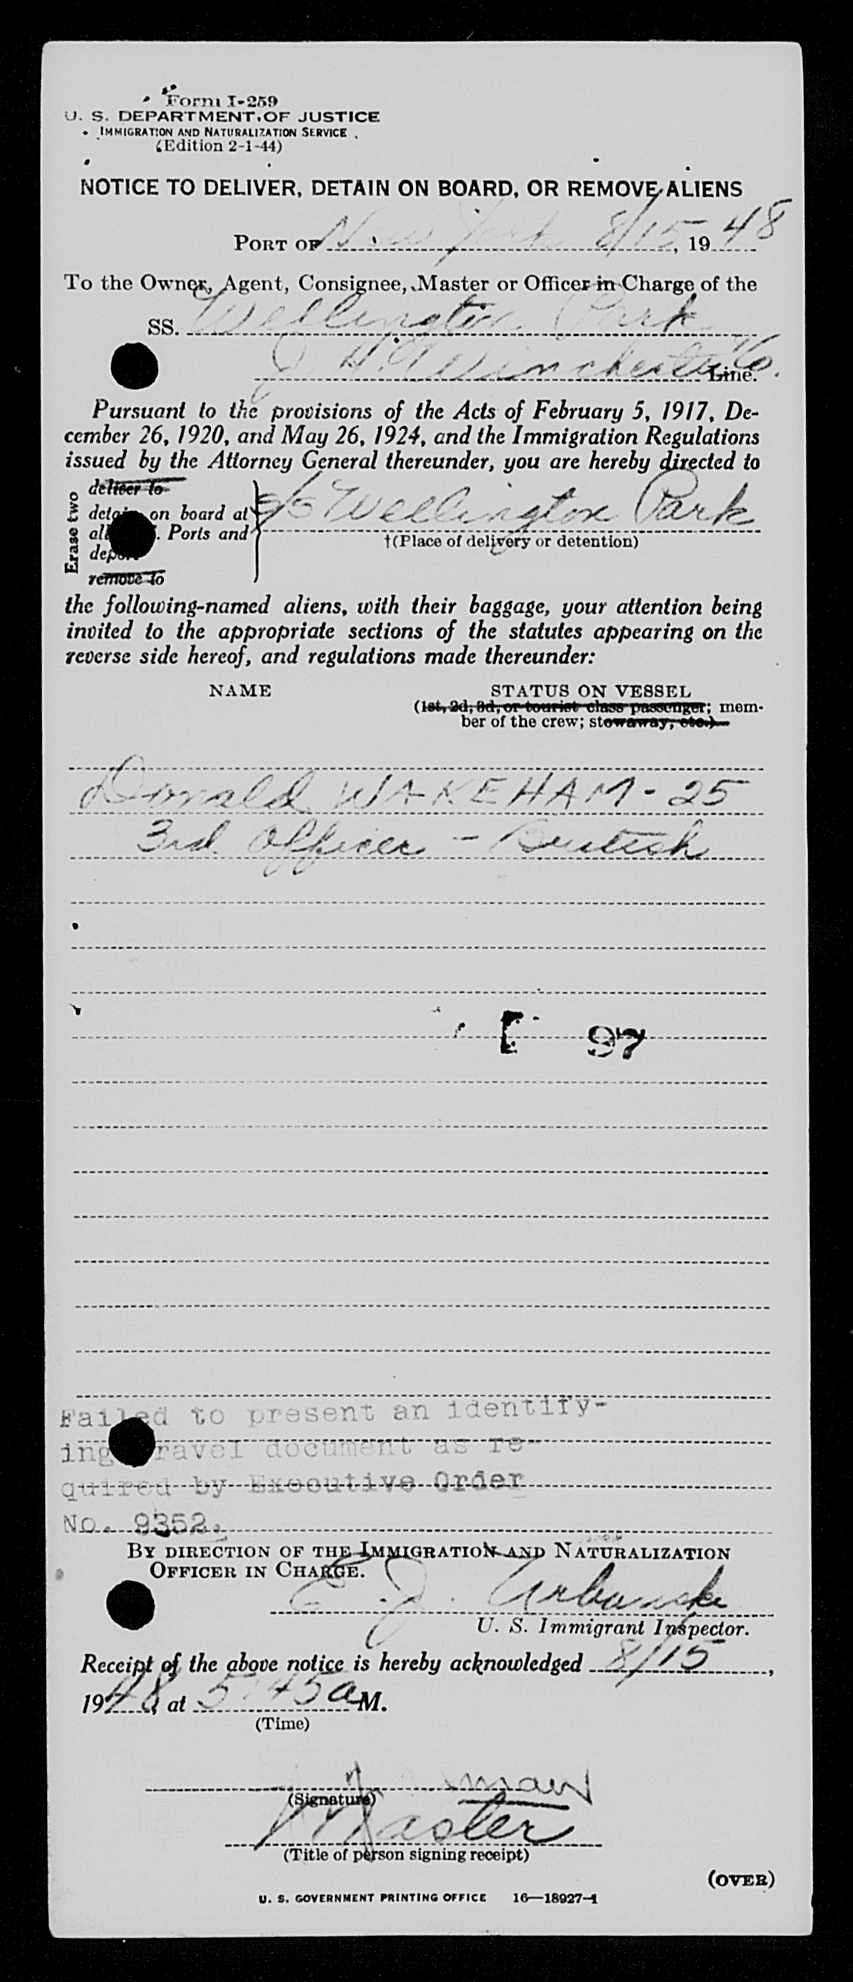 Form I-259
U. S. DEPARTMENT OF JUSTICE
IMMIGRATION AND NATURALIZATION SERVICE
(Edition 2-1-44)
NOTICE TO DELIVER, DETAIN ON BOARD, OR REMOVE ALIENS
PORT OF New York 8/15, 1948
To the Owner, Agent, Consignee, Master or Officer in Charge of the
SS. Wellington Park
J. H. Winchester Co. Line.
Pursuant to the provisions of the Acts of February 5, 1917, De-
cember 26, 1920, and May 26, 1924, and the Immigration Regulations
issued by the Attorney General thereunder, you are hereby directed to
Erase two
deliver to
detain on board at
all . Ports and
deport
remove to
S/S Wellington Park
†(Place of delivery or detention)
the following-named aliens, with their baggage, your attention being
invited to the appropriate sections of the statutes appearing on the
reverse side hereof, and regulations made thereunder:
NAME STATUS ON VESSEL
(1st, 2d, 3d, or tourist class passenger; mem-
ber of the crew; stowaway, etc.)
Donald WAKEHAM - 25
3rd Officer - British
97
Failed to present an identify-
ing travel document as re-
quired by Executive Order
No. 9352.
BY DIRECTION OF THE IMMIGRATION AND NATURALIZATION
OFFICER IN CHARGE.
E. J. Urbanski
U. S. Immigrant Inspector.
Receipt of the above notice is hereby acknowledged 8/15,
1948 at 5:45 a M.
(Time)
(Signature)
Master
(Title of person signing receipt)
(OVER)
U. S. GOVERNMENT PRINTING OFFICE 16—18927-1